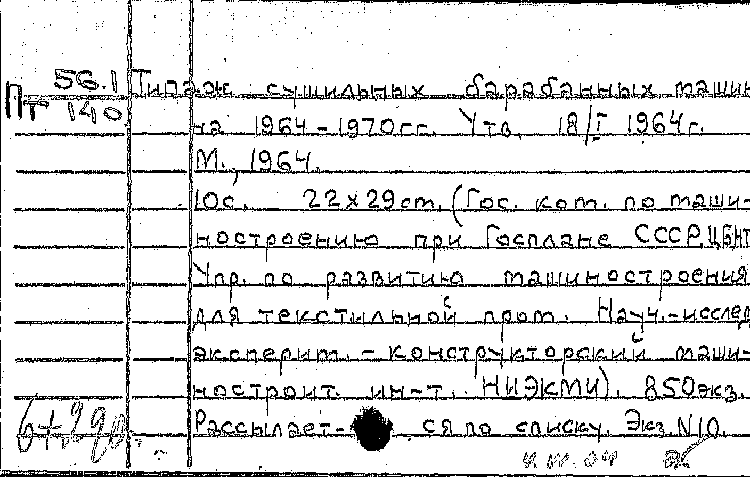 56.1 Типаж сушильных барабанных машин
Пт 140 на 1964-1970гг. Утв. 18/I 1964г.
М., 1964.
10с. 22x29cm. (Гос. ком. по маши-
ностроению при Госплане СССР, ЦБНТ
Упр. по развитию машиностроения
для текстильной пром. Науч.-исслед
эксперим.-конструкторский маши-
ностроит. ин-т. НИЭКМИ). 850экз.
Рассылает- ся по списку. Экз. N10.
6+290